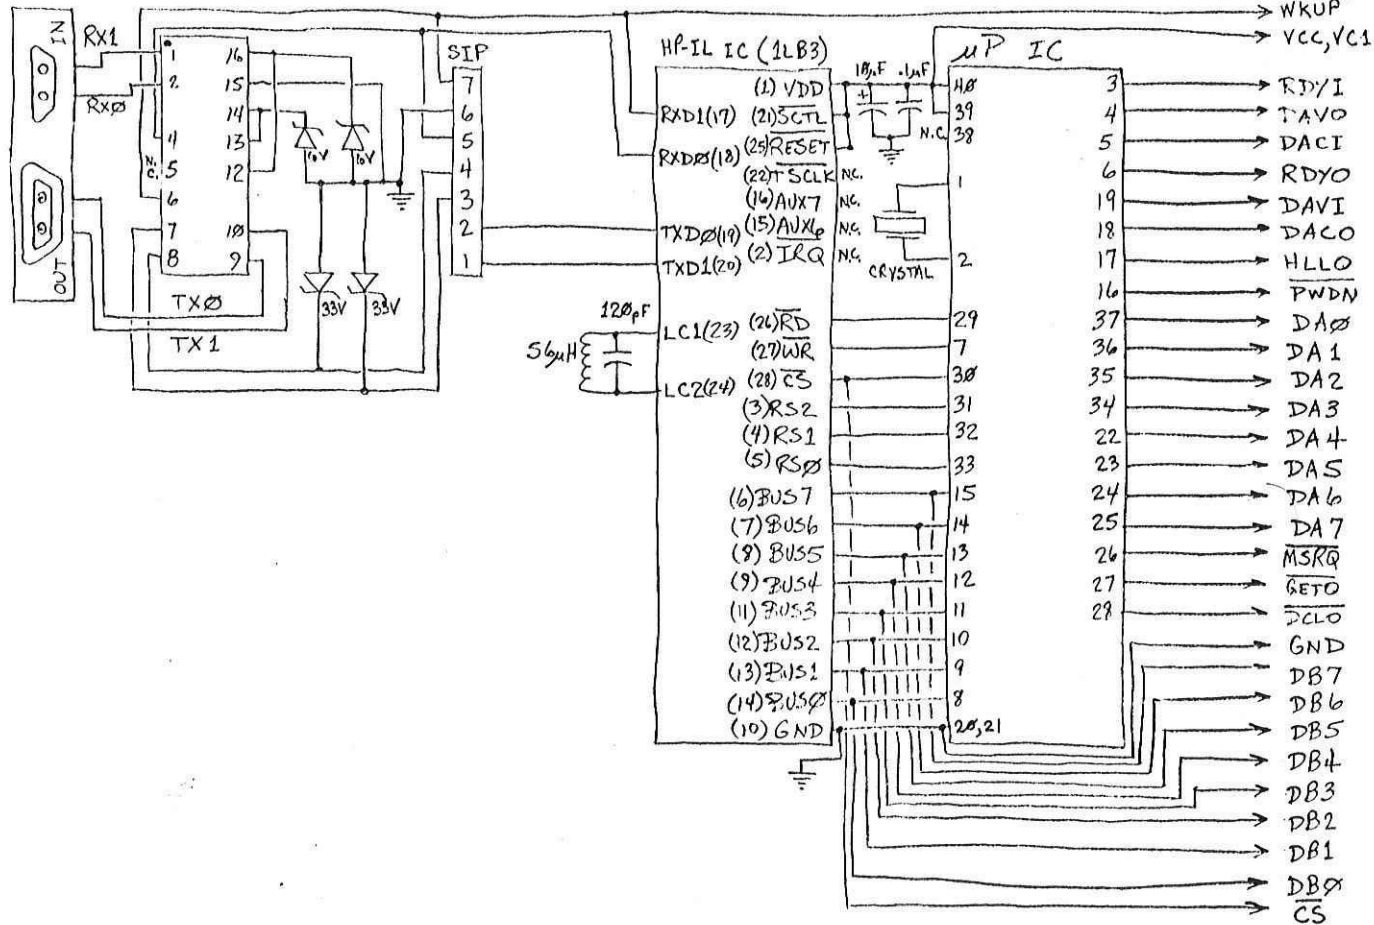 IN
RX1
RXØ
1
2
4
N.C. 5
6
7
8
16
15
14
13
12
10
9
10V
10V
33V
33V
TXØ
TX1
OUT
SIP
7
6
5
4
3
2
1
HP-IL IC (1LB3)
RXD1(17)
RXDØ(18)
TXDØ(19)
TXD1(20)
LC1(23)
LC2(24)
120pF
56μH
(1) VDD
(21) SCTL
(25) RESET
(22) TSCLK N.C.
(16) AUX7 N.C.
(15) AUX6 N.C.
(2) IRQ N.C.
(26) RD
(27) WR
(28) CS
(3) RS2
(4) RS1
(5) RSØ
(6) BUS7
(7) BUS6
(8) BUS5
(9) BUS4
(11) BUS3
(12) BUS2
(13) BUS1
(14) BUSØ
(10) GND
10μF
.1μF
+
CRYSTAL
μP IC
40
39
N.C. 38
1
2
29
7
30
31
32
33
15
14
13
12
11
10
9
8
20,21
3
4
5
6
19
18
17
16
37
36
35
34
22
23
24
25
26
27
28
WKUP
VCC, VC1
RDYI
DACI
RDYO
DAVI
DACO
HLLO
PWDN
DAØ
DA1
DA2
DA3
DA4
DA5
DA6
DA7
MSRQ
GETO
DCLO
GND
DB7
DB6
DB5
DB4
DB3
DB2
DB1
DBØ
CS